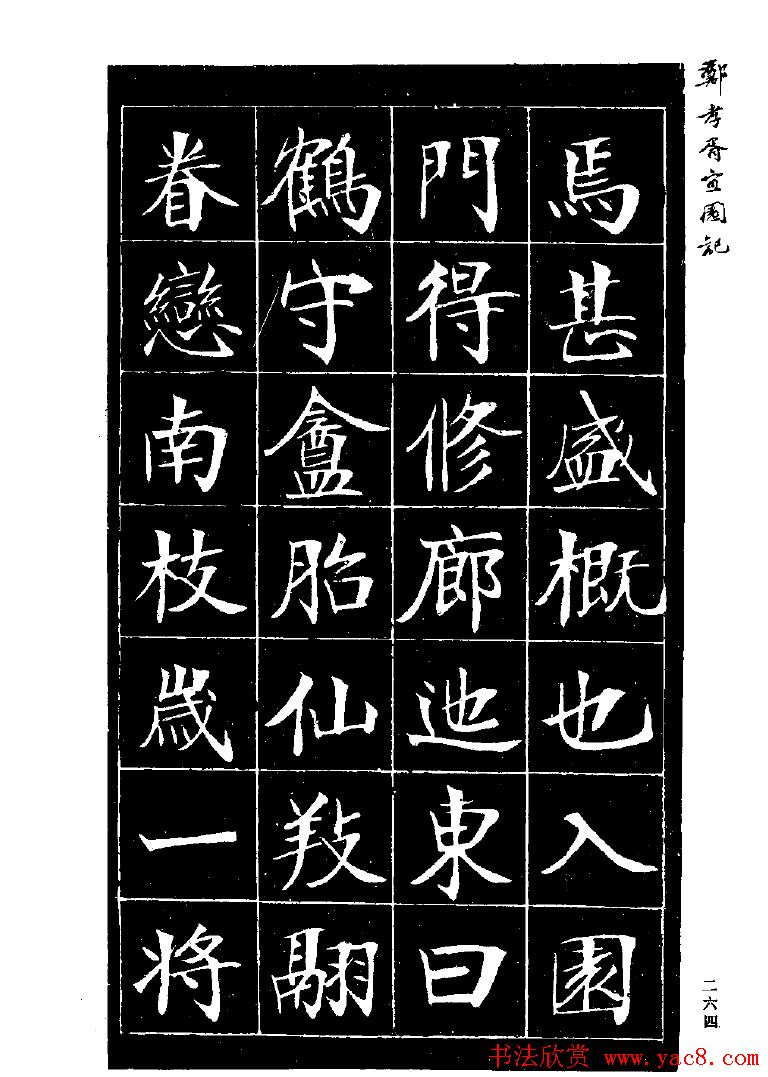 鄭孝胥宜園記
焉甚盛概也入園
門得修廊迆東曰
鶴守盦胎仙翮
眷戀南枝歲一將
二六四
书法欣赏 www.yac8.com